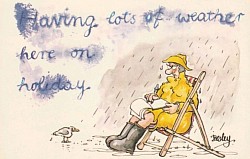 Having lots of weather
here on
holiday.
Besley.